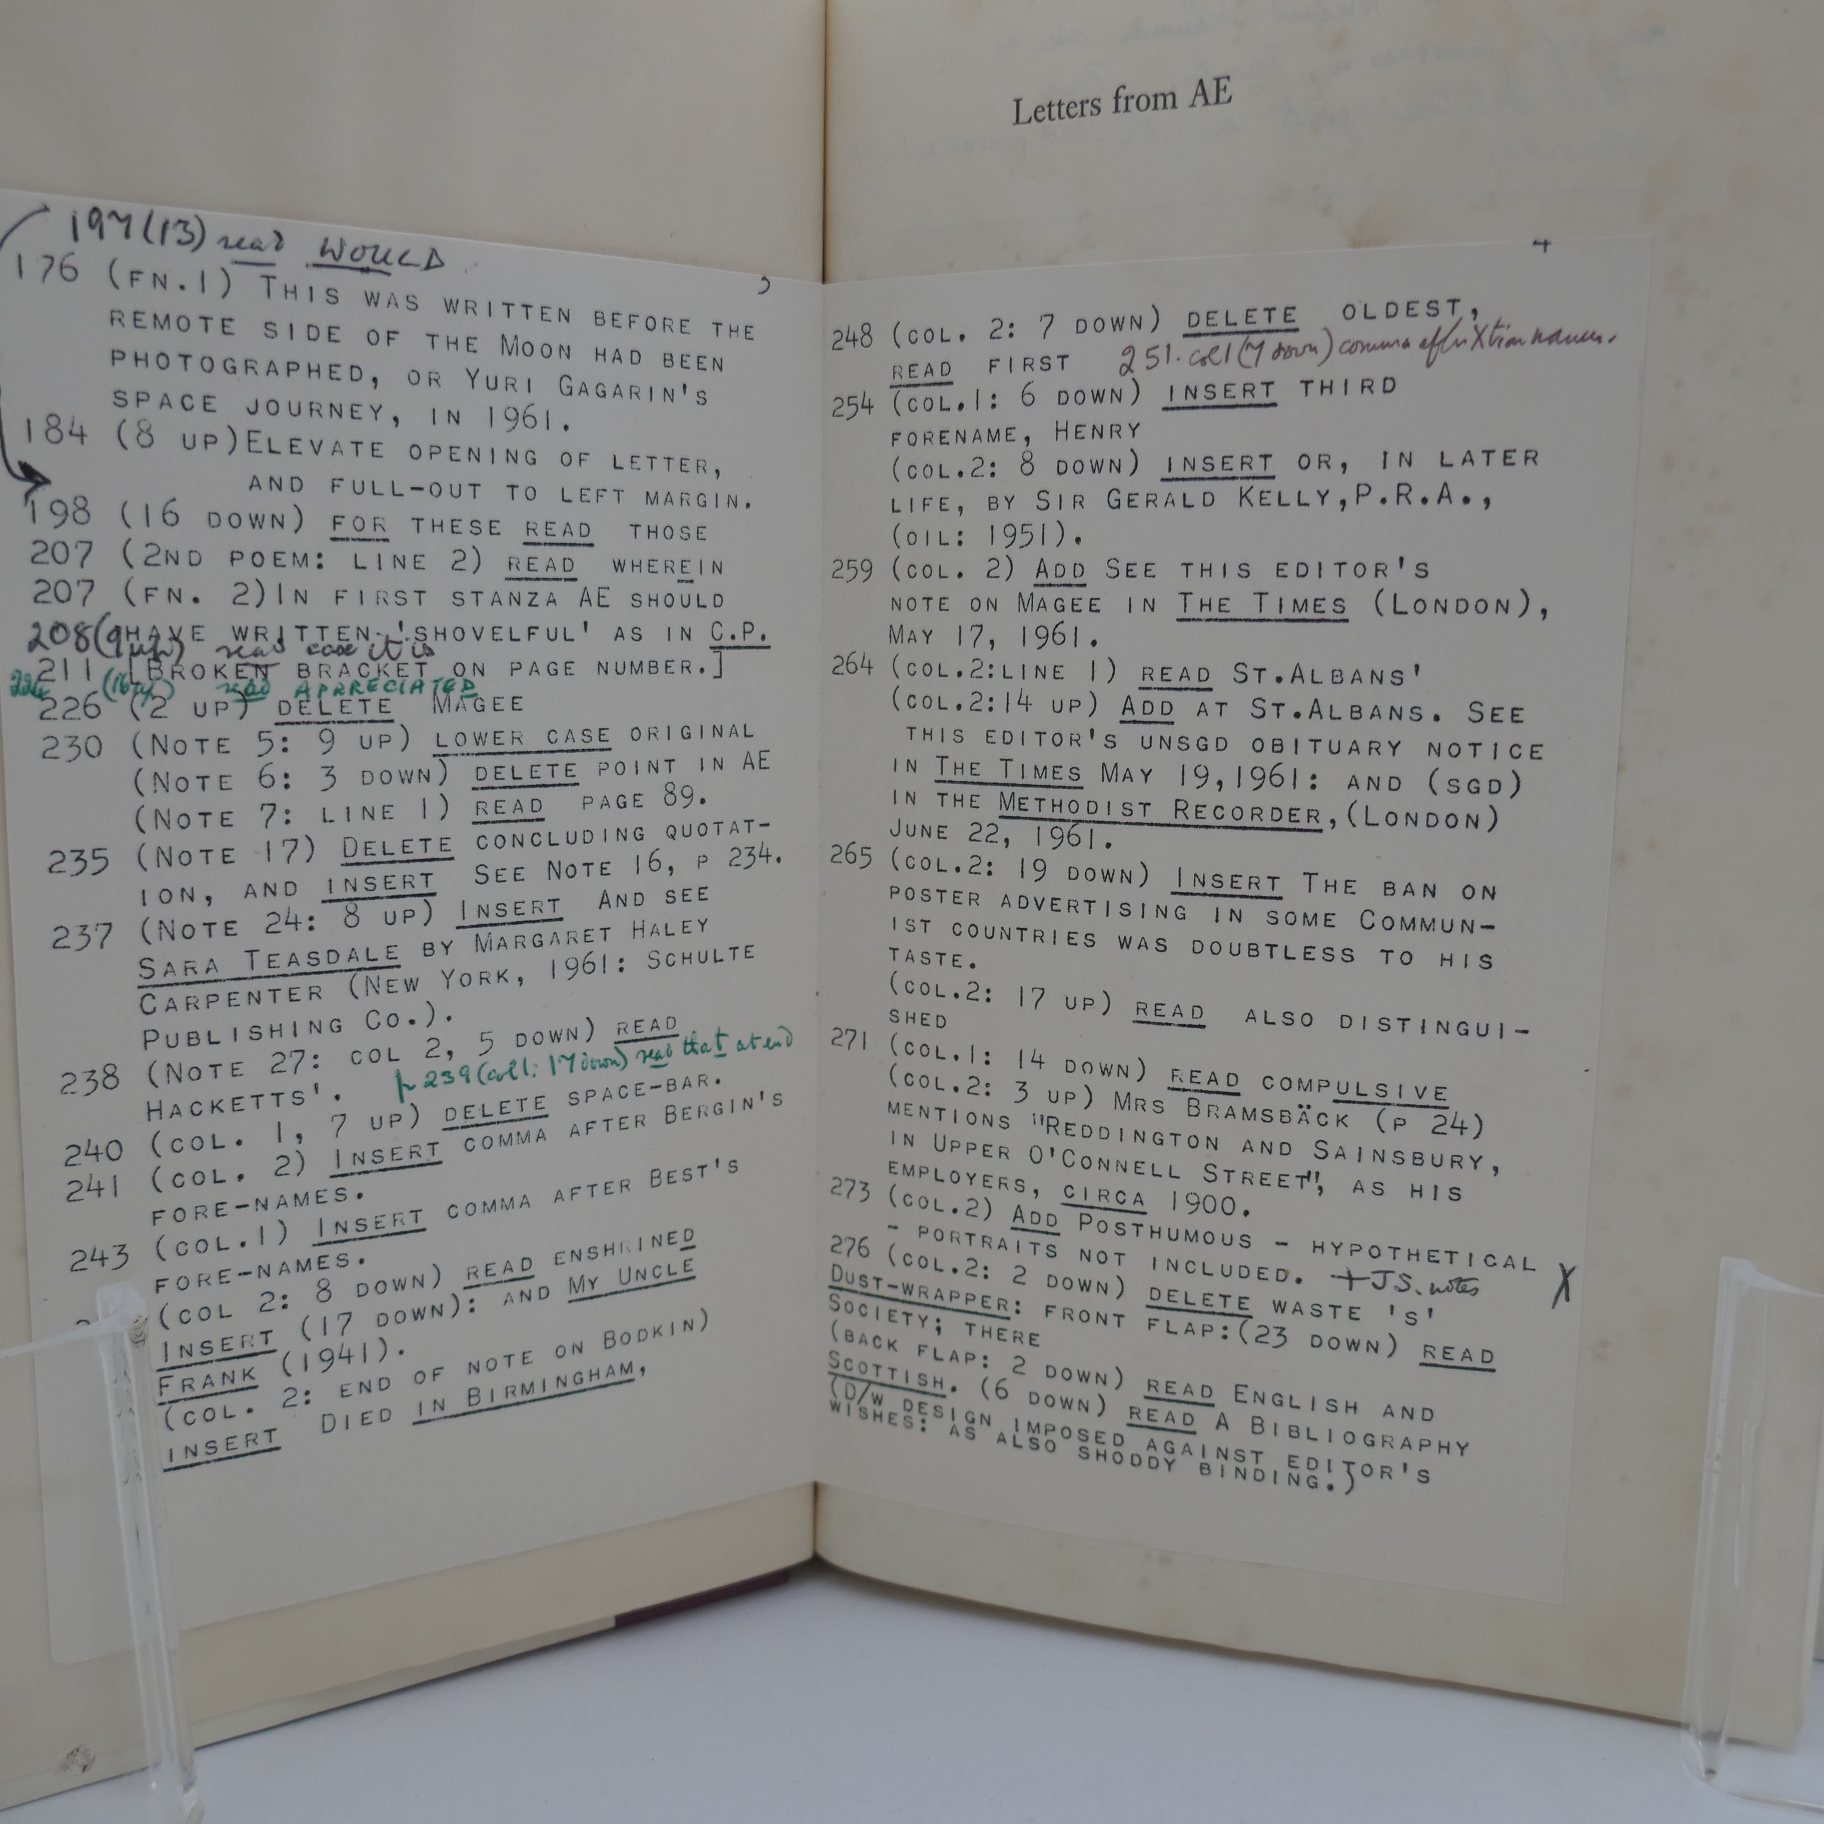 Letters from AE
197(13) read WOULD
3
176 (FN.1) THIS WAS WRITTEN BEFORE THE
REMOTE SIDE OF THE MOON HAD BEEN
PHOTOGRAPHED, OR YURI GAGARIN'S
SPACE JOURNEY, IN 1961.
184 (8 UP) ELEVATE OPENING OF LETTER,
AND FULL-OUT TO LEFT MARGIN.
198 (16 DOWN) FOR THESE READ THOSE
207 (2ND POEM: LINE 2) READ WHEREIN
207 (FN. 2) IN FIRST STANZA AE SHOULD
HAVE WRITTEN 'SHOVELFUL' AS IN C.P.
208 (9 up) read case it is
211 [BROKEN BRACKET ON PAGE NUMBER.]
224 (16 up) read APPRECIATED
226 (2 UP) DELETE MAGEE
230 (NOTE 5: 9 UP) LOWER CASE ORIGINAL
(NOTE 6: 3 DOWN) DELETE POINT IN AE
(NOTE 7: LINE 1) READ PAGE 89.
235 (NOTE 17) DELETE CONCLUDING QUOTAT-
ION, AND INSERT SEE NOTE 16, P 234.
237 (NOTE 24: 8 UP) INSERT AND SEE
SARA TEASDALE BY MARGARET HALEY
CARPENTER (NEW YORK, 1961: SCHULTE
PUBLISHING CO.).
238 (NOTE 27: COL 2, 5 DOWN) READ
HACKETTS'. p 239 (col 1: 17 down) read that at end
240 (COL. 1, 7 UP) DELETE SPACE-BAR.
241 (COL. 2) INSERT COMMA AFTER BERGIN'S
FORE-NAMES.
243 (COL.1) INSERT COMMA AFTER BEST'S
FORE-NAMES.
(COL 2: 8 DOWN) READ ENSHRINED
INSERT (17 DOWN): AND MY UNCLE
FRANK (1941).
(COL. 2: END OF NOTE ON BODKIN)
INSERT DIED IN BIRMINGHAM,
4
248 (COL. 2: 7 DOWN) DELETE OLDEST,
READ FIRST 251. col 1 (7 down) comma after Xtian names.
254 (COL.1: 6 DOWN) INSERT THIRD
FORENAME, HENRY
(COL.2: 8 DOWN) INSERT OR, IN LATER
LIFE, BY SIR GERALD KELLY, P.R.A.,
(OIL: 1951).
259 (COL. 2) ADD SEE THIS EDITOR'S
NOTE ON MAGEE IN THE TIMES (LONDON),
MAY 17, 1961.
264 (COL.2:LINE 1) READ ST.ALBANS'
(COL.2:14 UP) ADD AT ST.ALBANS. SEE
THIS EDITOR'S UNSGD OBITUARY NOTICE
IN THE TIMES MAY 19,1961: AND (SGD)
IN THE METHODIST RECORDER,(LONDON)
JUNE 22, 1961.
265 (COL.2: 19 DOWN) INSERT THE BAN ON
POSTER ADVERTISING IN SOME COMMUN-
IST COUNTRIES WAS DOUBTLESS TO HIS
TASTE.
(COL.2: 17 UP) READ ALSO DISTINGUI-
SHED
271 (COL.1: 14 DOWN) READ COMPULSIVE
(COL.2: 3 UP) MRS BRAMSBÄCK (P 24)
MENTIONS "REDDINGTON AND SAINSBURY,
IN UPPER O'CONNELL STREET", AS HIS
EMPLOYERS, CIRCA 1900.
273 (COL.2) ADD POSTHUMOUS - HYPOTHETICAL
- PORTRAITS NOT INCLUDED. + JS. notes X
276 (COL.2: 2 DOWN) DELETE WASTE 'S'
DUST-WRAPPER: FRONT FLAP:(23 DOWN) READ
SOCIETY; THERE
(BACK FLAP: 2 DOWN) READ ENGLISH AND
SCOTTISH. (6 DOWN) READ A BIBLIOGRAPHY
(D/W DESIGN IMPOSED AGAINST EDITOR'S
WISHES: AS ALSO SHODDY BINDING.)